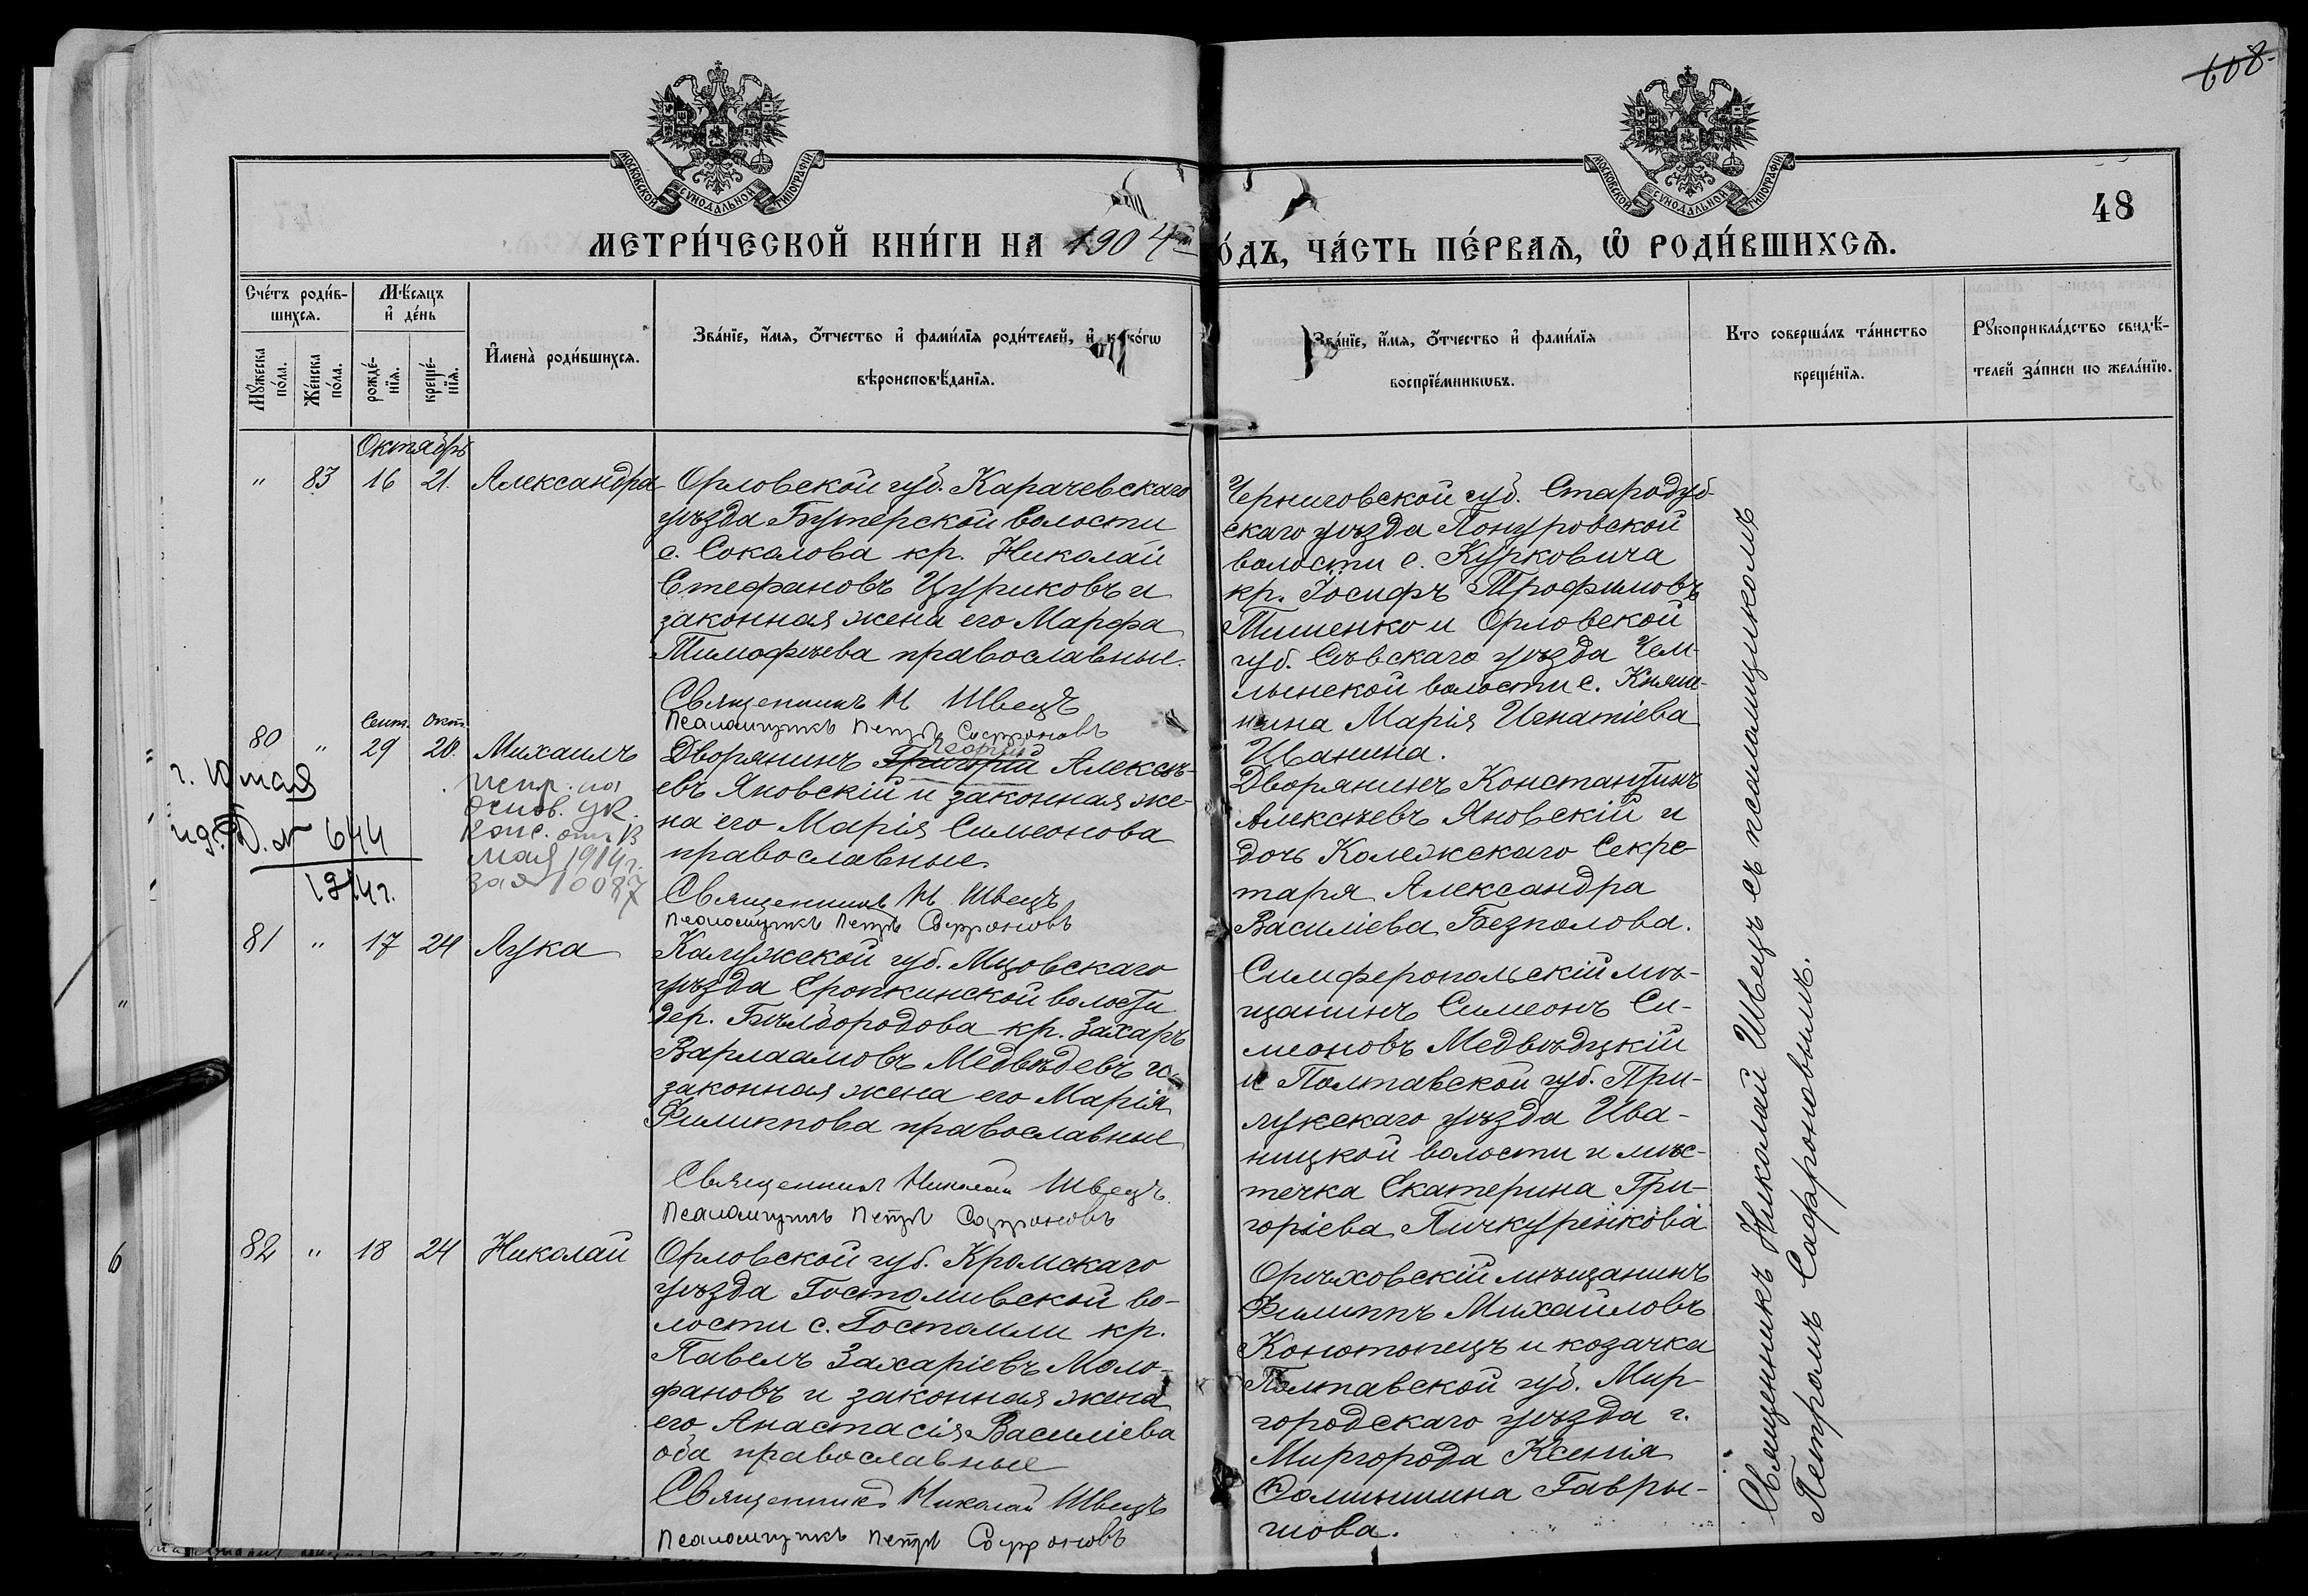 608
МОСКОВСКОЙ СУНОДАЛЬНОЙ ТИПОГРАФІИ
МОСКОВСКОЙ СУНОДАЛЬНОЙ ТИПОГРАФІИ
48
МЕТРИ́ЧЕСКОЙ КНИ́ГИ НА 1904й
О́ДЪ, ЧА́СТЬ ПЕ́РВАѦ, Ѽ РОДИ́ВШИХСѦ.
Сче́тъ роди́в-
шихсѧ.
Мѣ́сяцъ
и҆ де́нь
Мꙋ́жеска
по́ла.
Же́нска
по́ла.
рожде́-
нїѧ.
креще́-
нїѧ.
И҆мена̀ роди́вшихсѧ.
Зва́нїе, и҆́мѧ, ѻ҆́тчество и҆ фами́лїѧ роди́телей, и҆ ко́гѡ
вѣроисповѣ́данїѧ.
Зва́нїе, и҆́мѧ, ѻ҆́тчество и҆ фами́лїѧ
воспрїе́мникѡвъ.
Кто соверша́лъ та́инство
креще́нїѧ.
Рꙋкоприкла́дство свидѣ́-
телей за́писи по жела́нїю.
Октябрь
" 83 16 21. Александра
Орловской губ. Карачевскаго
уѣзда Бутерской волости
с. Соколова кр. Николай
Стефановъ Цуриковъ и
законная жена его Марфа
Тимофѣева православные.
Священникъ Н Швецъ
Псаломщикъ Петръ Софроновъ
Черниговской губ. Стародуб-
скаго уѣзда Понуровской
волости с. Курковича
кр. Іосифъ Трофимовъ
Тишенко и Орловской
губ. Сѣвскаго уѣзда Чем-
лынской волости с. Княги-
нина Марія Игнатіева
Иванина.
Сент. Окт.
80 " 29 20. Михаилъ
г. 10 мая
Д. № 644
1914 г.
испр. на
основ. ук.
конс. отъ 13
мая 1914 г.
за № 10087
Георгій
Дворянинъ Григорій Алексѣ-
евъ Яновскій и законная же-
на его Марія Симеонова
православные
Священникъ Н Швецъ
Псаломщикъ Петръ Софроновъ
Дворянинъ Константинъ
Алексѣевъ Яновскій и
дочь Колежскаго Секре-
таря Александра
Василіева Безполова.
81 " 17 24 Лука
Калужской губ. Мцовскаго
уѣзда Сропкинской волости
дер. Бѣлбородова кр. Захаръ
Варлаамовъ Медвѣдевъ и
законная жена его Марія
Филиппова православные
Священникъ Николай Швецъ.
Псаломщикъ Петръ Софроновъ
Симферопольскій мѣ-
щанинъ Симеонъ Си-
меоновъ Медвѣдцкій
и Полтавской губ. При-
лукскаго уѣзда Ива-
ницкой волости и мѣс-
течка Екатерина Гри-
горіева Пичкуренкова
6
82 " 18 24 Николай
Орловской губ. Кромскаго
уѣзда Гостомивской во-
лости с. Гостомли кр.
Павелъ Захаріевъ Моло-
фановъ и законная жена
его Анастасія Василіева
оба православные
Священникъ Николай Швецъ
Псаломщикъ Петръ Софроновъ
Орѣховскій мѣщанинъ
Филиппъ Михайловъ
Конотопецъ и козачка
Полтавской губ. Мир-
городскаго уѣзда г.
Миргорода Ксенія
Фоминишна Гавры-
шова.
Священникъ Николай Швецъ съ псаломщикомъ
Петромъ Сафроновымъ.